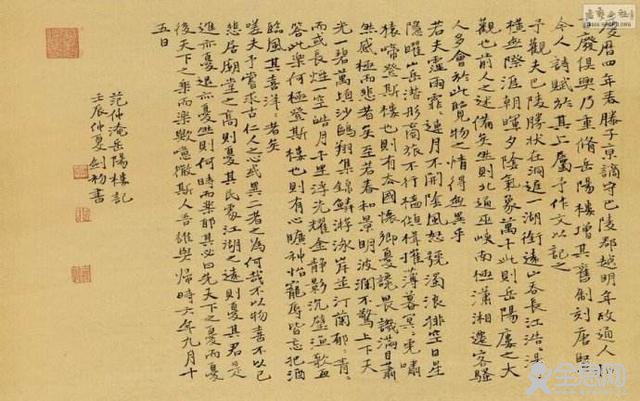 慶曆四年春滕子京謫守巴陵郡越明年政通人和
百廢俱興乃重脩岳陽樓增其舊制刻唐賢
今人詩賦於其上屬予作文以記之
予觀夫巴陵勝狀在洞庭一湖銜遠山吞長江浩〻湯〻
橫無際涯朝暉夕陰氣象萬千此則岳陽樓之大
觀也前人之述備矣然則北通巫峽南極瀟湘遷客騷
人多會於此覽物之情得無異乎
若夫霪雨霏〻連月不開陰風怒號濁浪排空日星
隱曜山岳潛形商旅不行檣傾楫摧薄暮冥〻虎嘯
猿啼登斯樓也則有去國懷鄉憂讒畏譏滿目蕭
然感極而悲者矣至若春和景明波瀾不驚上下天
光一碧萬頃沙鷗翔集錦鱗游泳岸芷汀蘭郁〻青〻
而或長煙一空皓月千里浮光耀金靜影沉璧漁歌互
答此樂何極登斯樓也則有心曠神怡寵辱皆忘把酒
臨風其喜洋〻者矣
嗟夫予嘗求古仁人之心或異二者之為何哉不以物喜不以己
悲居廟堂之高則憂其民處江湖之遠則憂其君是
進亦憂退亦憂然則何時而樂耶其必曰先天下之憂而憂
後天下之樂而樂歟噫微斯人吾誰與歸時六年九月十
五日
范仲淹岳陽樓記
壬辰仲夏書